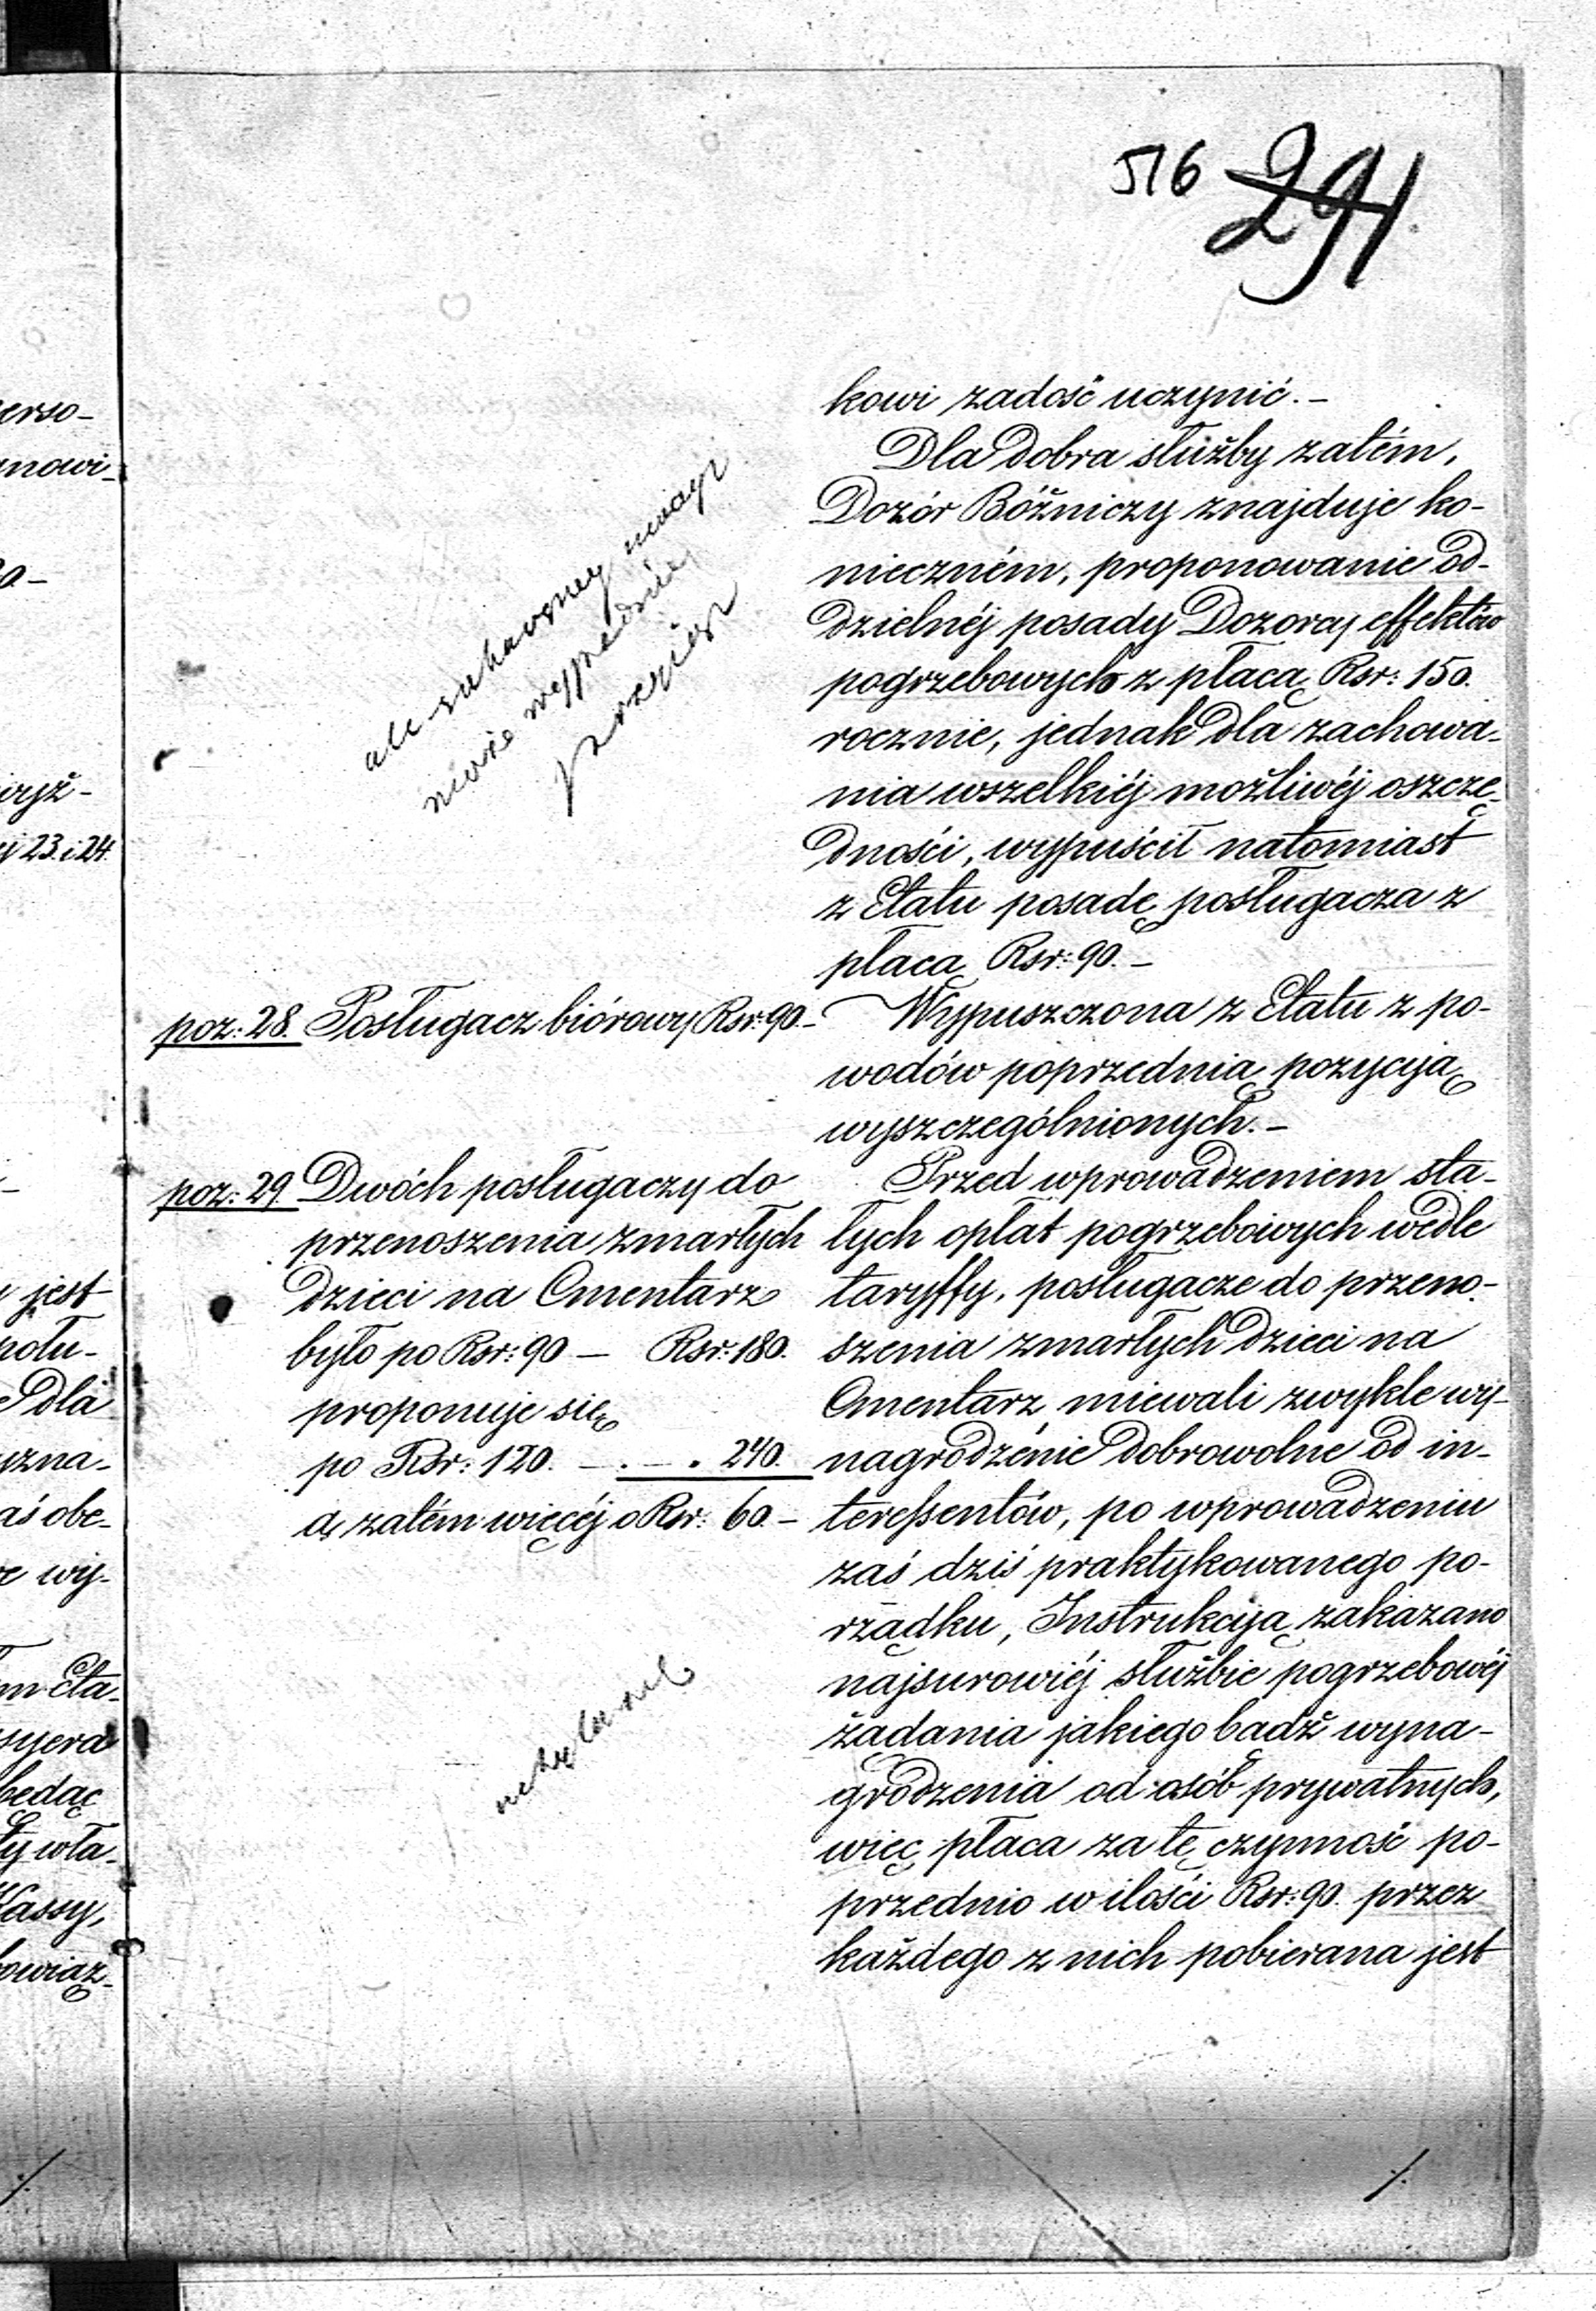 516 291.
kowi zadość uczynić. –
Dla dobra służby zatém,
Dozór Bóżniczy znajduje ko-
nieczném, proponowanie od-
dzielnéj posady Dozorcy effektów
pogrzebowych z płacą Rsr: 150.
rocznie, jednak dla zachowa-
nia wszelkiéj możliwéj oszczę-
dności, wypuścił natomiast
z Etatu posadę posługacza z
płacą Rsr: 90. –
poz: 28. Posługacz biórowy Rsr: 90. –
Wypuszczona z Etatu z po-
wodów poprzednią pozycyją
wyszczególnionych. –
poz: 29. Dwóch posługaczy do
przenoszenia zmarłych
dzieci na Cmentarz
było po Rsr: 90 – Rsr: 180.
proponuje się
po Rsr: 120. – . – . 240.
a zatém więcéj o Rsr: 60. –
Przed wprowadzeniem sta-
łych opłat pogrzebowych wedle
taryffy, posługacze do przeno-
szenia zmarłych dzieci na
Cmentarz, miewali zwykle wy-
nagrodzenie dobrowolne od in-
teressentów, po wprowadzeniu
zaś dziś praktykowanego po-
rządku, Instrukcyją zakazano
najsurowiéj służbie pogrzebowéj
żądania jakiego bądź wyna-
grodzenia od osób prywatnych,
więc płaca za tę czynność po-
przednio w ilości Rsr: 90. przez
każdego z nich pobierana jest
erso-
nowi-
23. i 24.
jest
dla
uzna-
aś obe-
wy-
Eta-
będąc
wła-
Kassy,